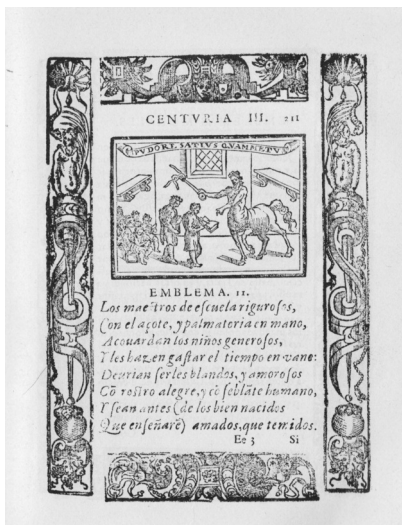 CENTVRIA III. 211
PVDORE SATIVS QVAM METV
EMBLEMA. 11.
Los maestros de escuela rigurosos,
Con el açote, y palmatoria en mano,
Acouardan los niños generosos,
Y les hazen gastar el tiempo en vano:
Deurian serles blandos, y amorosos
Cõ rostro alegre, y cõ sẽblãte humano,
Y sean antes (de los bien nacidos
Que enseñarẽ) amados, que temidos.
Ee 3 Si